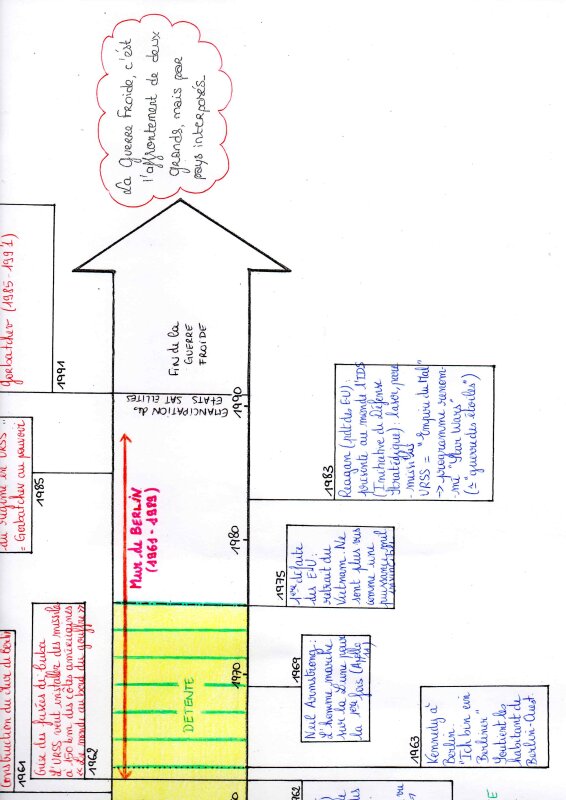 Construction du Mur de Berlin
1961
Crise des fusées de Cuba
L'URSS veut installer des missiles
à 150 km des côtes américaines
« Le monde au bord du gouffre »
1962
du régime en URSS :
= Gorbatchev au pouvoir
1985
Gorbatchev (1985-1991)
1991
Mur de BERLIN
(1961-1989)
DETENTE
EMANCIPATION des
ETATS SATELLITES
FIN de la
GUERRE
FROIDE
La Guerre Froide, c'est
l'affrontement de deux
grands, mais par
pays interposés.
1970
1980
1990
1963
Kennedy à
Berlin
"Ich bin ein
Berliner"
Soutient les
habitant de
Berlin-Ouest.
1969
Neil Armstrong :
L'homme marche
sur la Lune pour
la 1ère fois (Apollo
11)
1975
1ère défaite
des E-U :
retrait du
Vietnam. Ne
sont plus vus
comme une
puissance
1983
Reagan (pdt des EU)
présente au monde l'IDS
(Initiative de Défense
Stratégique) : laser, pare
-missiles
URSS = "Empire du Mal"
-> programme renom-
mé "Star Wars"
(= "guerre des étoiles")